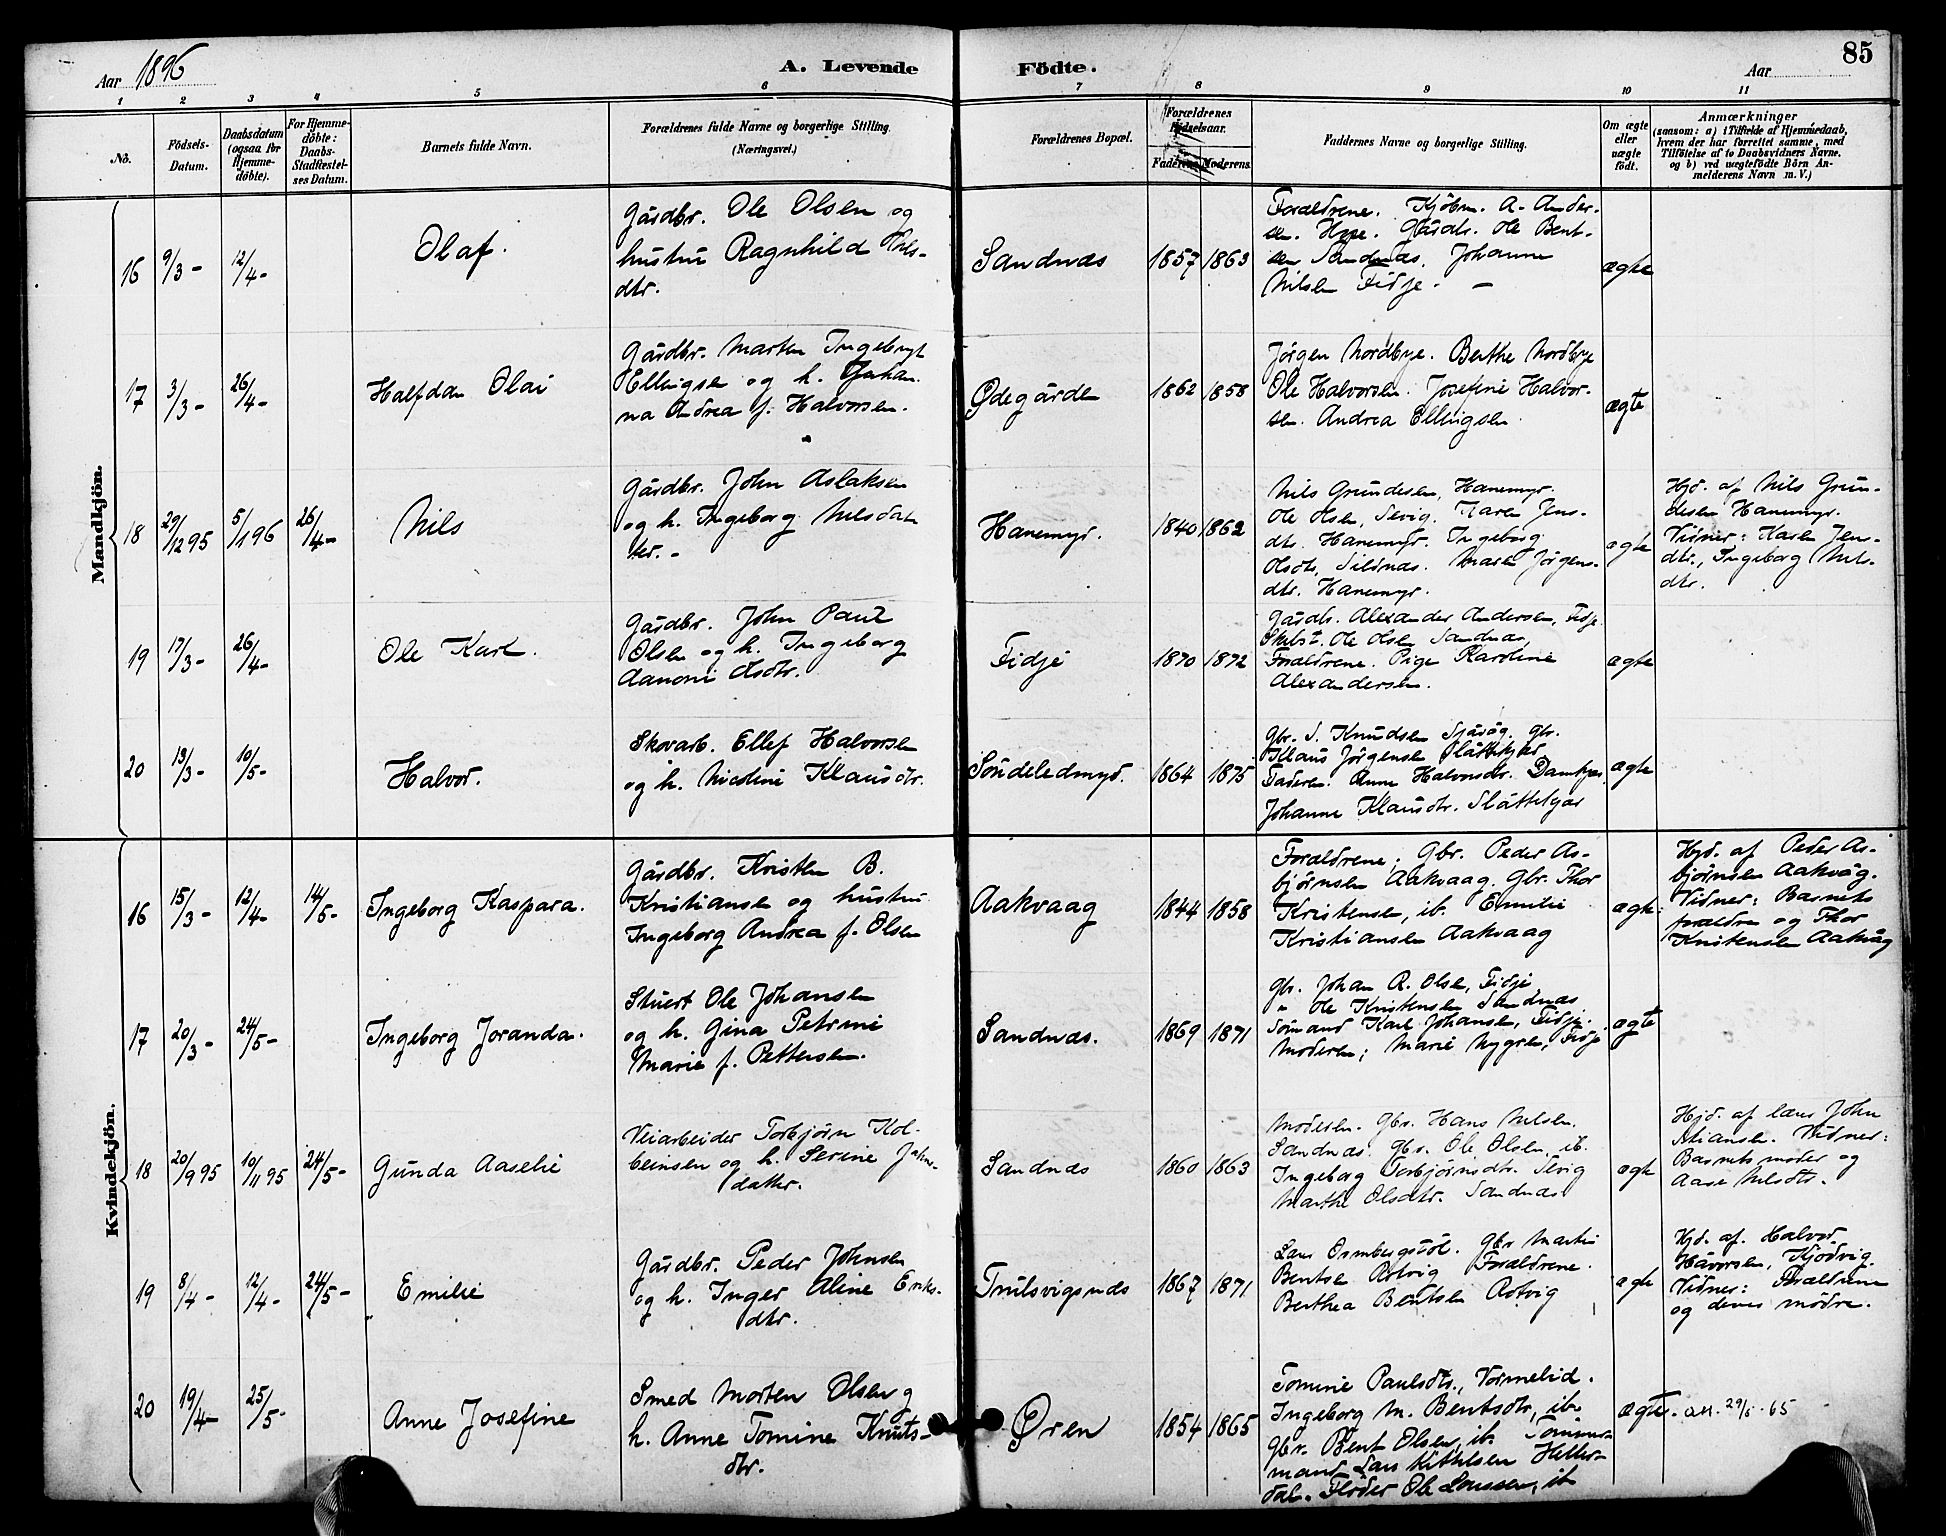 85
Aar 1896
A. Levende Födte.
Aar
1 2 3 4 5 6 7 8 9 10 11
No.
Födsels-Datum.
Daabsdatum (ogsaa for Hjemme-döbte).
For Hjemme-döbte: Daabs-Stadfæstel-ses Datum.
Barnets fulde Navn.
Forældrenes fulde Navne og borgerlige Stilling. (Næringsvei.)
Forældrenes Bopæl.
Forældrenes Födselsaar.
Faderens Moderens.
Faddernes Navne og borgerlige Stilling.
Om ægte eller uægte födt.
Anmærkninger
(saasom: a) i Tilfælde af Hjemmedaab,
hvem der har forrettet samme, med
Tilföielse af to Daabsvidners Navne,
og b) ved uægtefödte Börn An-
melderens Navn m. V.)
Mandkjön.
16 9/3 - 12/4 - Olaf.
Gårdbr. Ole Olsen og
hustru Ragnhild
dtr.
Sandnæs 1857 1863
Forældrene. Kjöbm. A. Ander-
sen. Hope. Gårdb. Ole Bent-
sen Sandnæs. Johanne
Nilsen Fidje. -
ægte
17 3/3 - 26/4 - Halfdan Olai
Gårdbr. Marten Ingebrigt
Ellingsen og h. Johan-
na Andrea f. Halvorsen.
Ødegården 1862 1858
Jørgen Nordbye. Berthe Nordbye
Ole Halvorsen. Josefine Halvor-
sen. Andrea Ellingsen.
ægte
18 29/12 95 5/1 96 26/4 - Nils
Gårdbr. John Aslaksen
og h. Ingeborg Nilsdat-
ter. -
Hanemyr. 1840 1862
Nils Grundesen, Hanemyr.
Ole Olsen, Sevig. Karen Jens-
dtr. Hanemyr. Ingeborg
Olsdtr, Sildnæs. Maren Jørgens-
dtr. Hanemyr.
ægte
Hjd. af Nils Grun-
desen Hanemyr.
Vidner: Karen Jens-
dtr., Ingeborg Nils-
dtr.
19 17/3 - 26/4 - Ole Karl.
Gårdbr. John Paul
Olsen og h. Ingeborg
Aanoni Olsdtr.
Fidje 1870 1872
Gårdb. Alexander Andersen, Fidje.
Ole Olsen Sandnæs,
Forældrene. Pige Karoline
Alexandersen.
ægte
20 13/3 - 10/5 - Halvor.
Skovarb. Ellef Halvorsen
og h. Nicoline Klausdtr.
Söndeledmyr. 1864 1875
Gbr. S. Knudsen Sjåvåg. Gbr.
Klaus Jørgensen Slåttekjær
Faderen. Anne Halvorsdtr.
Johanne Klausdtr. Slåttekjær
ægte
Kvindekjön.
16 15/3 - 12/4 - 14/5 - Ingeborg Kaspara.
Gårdbr. Kristen B.
Kristiansen og hustru
Ingeborg Andrea f. Olsen
Aakvaag 1844 1858
Forældrene. Gbr. Peder As-
bjørnsen Aakvaag. Gbr. Thor
Kristensen, ib. Emilie
Kristiansen Aakvaag
ægte.
Hjd. af Peder As-
bjørnsen Aakvåg.
Vidner: Barnets
forældre og Thor
Kristensen Aakvåg
17 20/3 - 24/5 - Ingeborg Joranda.
Stuert Ole Johansen
og h. Gina Petrine
Marie f. Pettersen.
Sandnæs. 1869 1871
Gbr. Johan R. Olsen, Fidje,
" Ole Kristensen Sandnæs
Sömand Karl Johansen, Fidje.
Moderen; Marie Nygren, Fidje
ægte
18 20/9 95 10/11 95 24/5 - Gunda Aaselie
Veiarbeider Torbjørn Kol-
beinsen og h. Serine Jahns-
datter.
Sandnæs 1860 1863
Moderen. Gbr. Hans Nilsen.
Sandnæs. Gbr. Ole Olsen, ib.
Ingeborg Torbjørnsdtr. Sevig
Marthe Olsdtr. Sandnæs
ægte
Hjd. af læns John
Stiansen. Vidner:
Barnets moder og
Aase Nilsdtr.
19 8/4 - 12/4 - 24/5 - Emilie
Gårdbr. Peder Johnsen
og h. Inger Aline Eriks-
dtr.
Trulsvigsnæs 1867 1871
Lars Ormbergstöl. Gbr Martin
Bentsen Rotvig Forældrene.
Berthea Bentsen Rotvig
ægte
Hjd. af. Halvor
Håvorsen, Kjödvig.
Vidner: Forældrene
og deres mödre.
20 19/4 - 25/5 - Anne Josefine
Smed Morten Olsen og
h. Anne Tomine Knuts-
dtr.
Øren 1854 1865
Tomine Paulsdtr., Vormelid.
Ingeborg M. Bentsdtr, ib.
Gbr. Bent Olsen, ib. Tömmer-
mand Lars Kittelsen Heller-
dal. Flöder Ole Larssen, ib
ægte.
att. 29/5 - 65